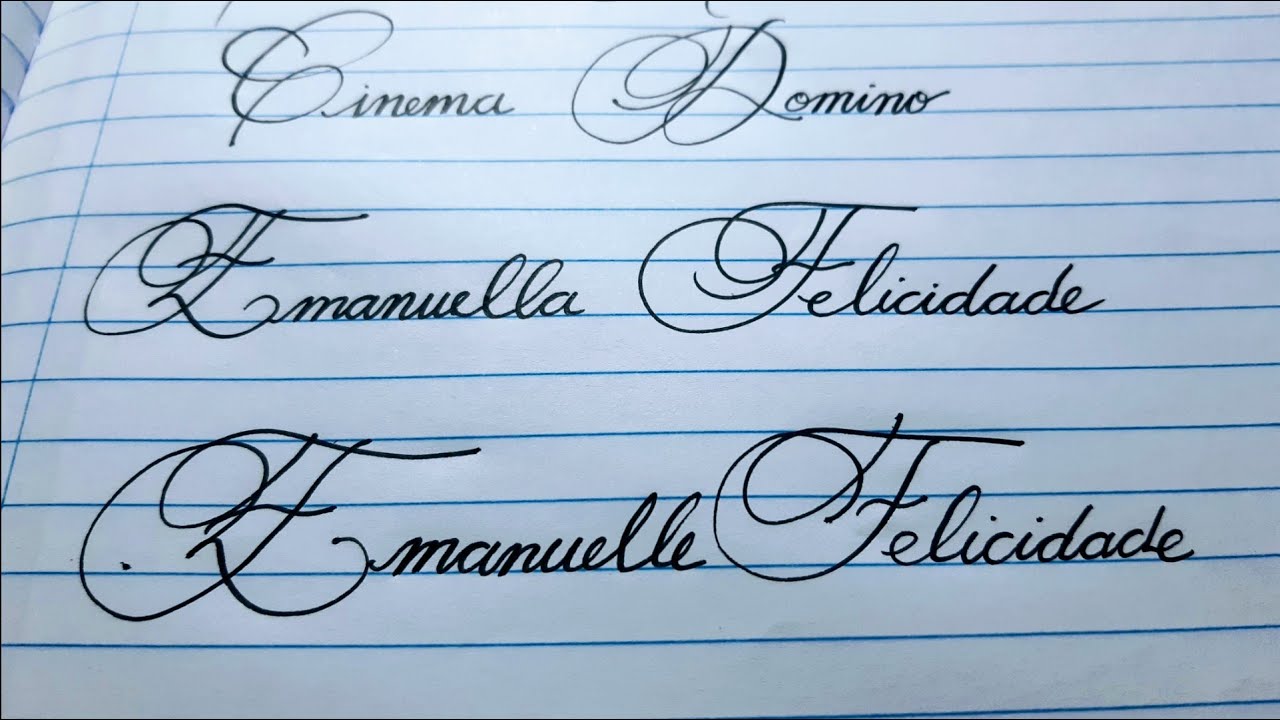 Cinema Domino
Emanuella Felicidade
Emanuelle Felicidade